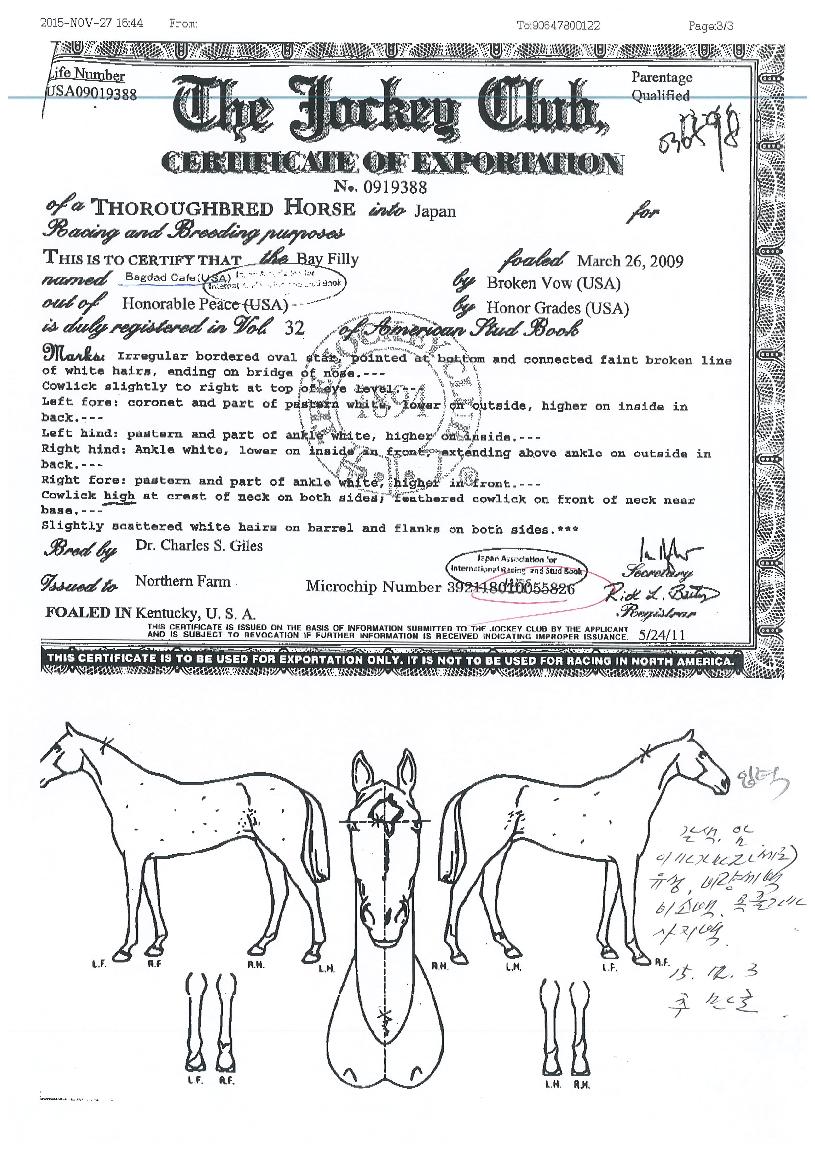 2015-NOV-27 16:44 From: To:90647800122 Page:3/3
Life Number
USA09019388
Parentage
Qualified
The Jockey Club,
CERTIFICATE OF EXPORTATION
No. 0919388
of a THOROUGHBRED HORSE into Japan for
Racing and Breeding purposes
THIS IS TO CERTIFY THAT the Bay Filly foaled March 26, 2009
named Bagdad Cafe(USA) by Broken Vow (USA)
out of Honorable Peace (USA)--- by Honor Grades (USA)
is duly registered in Vol. 32 of American Stud Book
THE JOCKEY CLUB
1894
Marks: Irregular bordered oval star, pointed at bottom and connected faint broken line
of white hairs, ending on bridge of nose.---
Cowlick slightly to right at top of eye level.---
Left fore: coronet and part of pastern white, lower on outside, higher on inside in
back.---
Left hind: pastern and part of ankle white, higher on inside.---
Right hind: Ankle white, lower on inside in front, extending above ankle on outside in
back.---
Right fore: pastern and part of ankle white, higher in front.---
Cowlick high at crest of neck on both sides; feathered cowlick on front of neck near
base.---
Slightly scattered white hairs on barrel and flanks on both sides.***
Bred by Dr. Charles S. Giles
Japan Association for
International Racing and Stud Book
Secretary
Issued to Northern Farm Microchip Number 392118010055826
Registrar
FOALED IN Kentucky, U. S. A.
THIS CERTIFICATE IS ISSUED ON THE BASIS OF INFORMATION SUBMITTED TO THE JOCKEY CLUB BY THE APPLICANT
AND IS SUBJECT TO REVOCATION IF FURTHER INFORMATION IS RECEIVED INDICATING IMPROPER ISSUANCE. 5/24/11
THIS CERTIFICATE IS TO BE USED FOR EXPORTATION ONLY. IT IS NOT TO BE USED FOR RACING IN NORTH AMERICA.
L.F. R.F. R.H. L.H. R.H. L.H. L.F. R.F.
15. 12. 3
L.F. R.F. L.H. R.H.